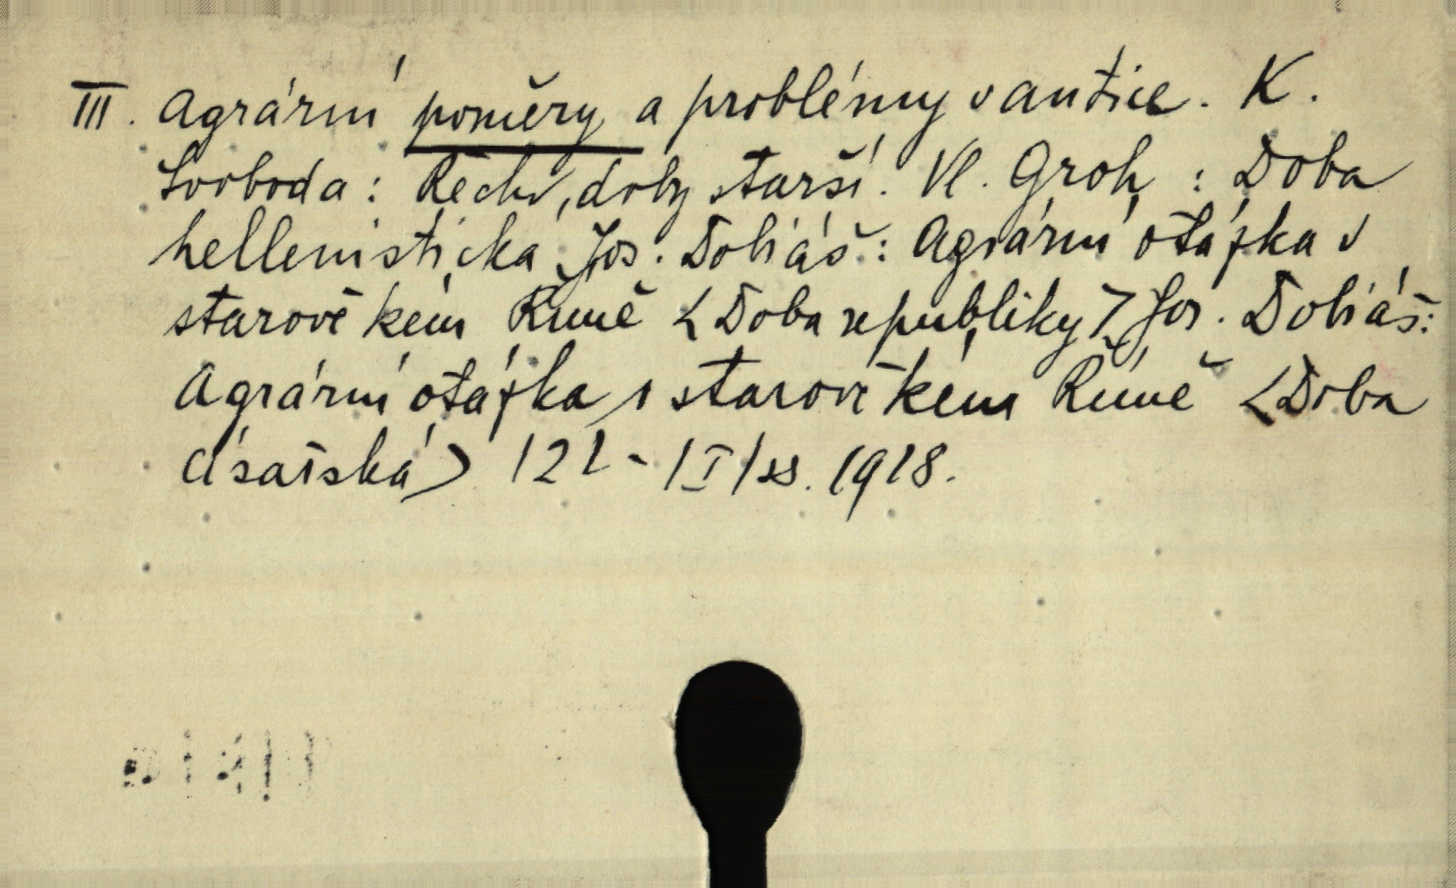 III. Agrární poměry a problémy v antice. K.
Svoboda: Řecko, doby starší. Vl. Groh: Doba
hellenistická. Jos. Dobiáš: Agrární otázka v
starověkém Římě <Doba republiky> Jos. Dobiáš:
Agrární otázka v starověkém Římě <Doba
císařská> 121 - /I/ ss. 1918.